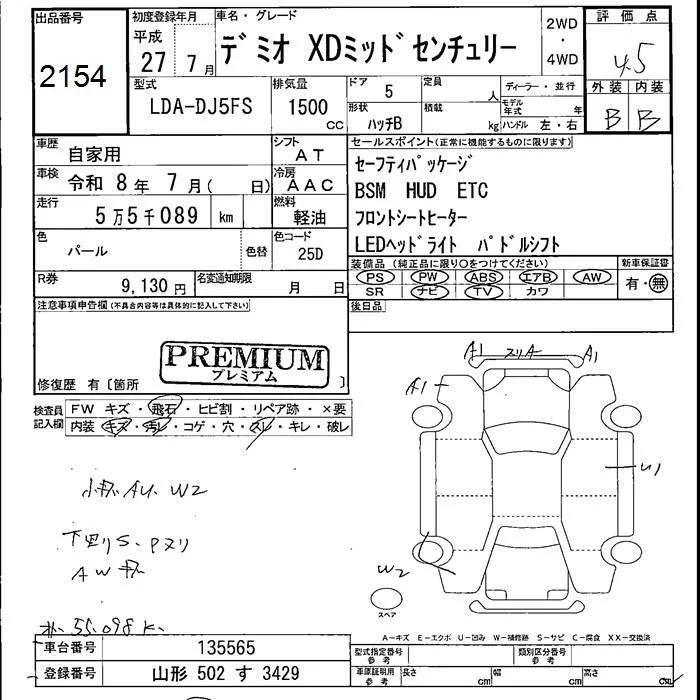 出品番号
2154
初度登録年月
平成
27 7月
車名・グレード
デミオ XDミッドセンチュリー
2WD
・
4WD
評価点
4.5
外装 内装
B B
型式
LDA-DJ5FS
排気量
1500
CC
ドア
5
形状
ハッチB
定員
人
積載
kg
ディーラー・並行
モデル年式 年
ハンドル 左・右
車歴
自家用
シフト
AT
車検
令和 8年 7月( 日)
冷房
AAC
走行
5万5千089 km
燃料
軽油
色
パール
色替
色コード
25D
R券
9,130円
名変通知期限
月 日
セールスポイント(正常に機能するものに限ります)
セーフティパッケージ
BSM HUD ETC
フロントシートヒーター
LEDヘッドライト パドルシフト
装備品(純正品に限り〇をつけてください)
PS PW ABS エアB AW
SR ナビ TV カワ
新車保証書
有・無
後日品
注意事項申告欄(不具合内容等は具体的に記入して下さい)
PREMIUM
プレミアム
修復歴 有〔箇所 〕
検査員
記入欄
FW キズ・飛石・ヒビ割・リペア跡・×要
内装 キズ・汚レ・コゲ・穴・スレ・キレ・破レ
A1 スリA A1
A1
U1
W2
スペア
小 AU. W2
下回りS. Pヌリ
AW
55.098K
A-キズ E-エクボ U-凹み W-補修跡 S-サビ C-腐食 XX-交換済
車台番号
135565
登録番号
山形 502 す 3429
型式指定番号
参考
類別区分番号
参考
車庫証明用
参考
長さ cm
幅 cm
高さ cm